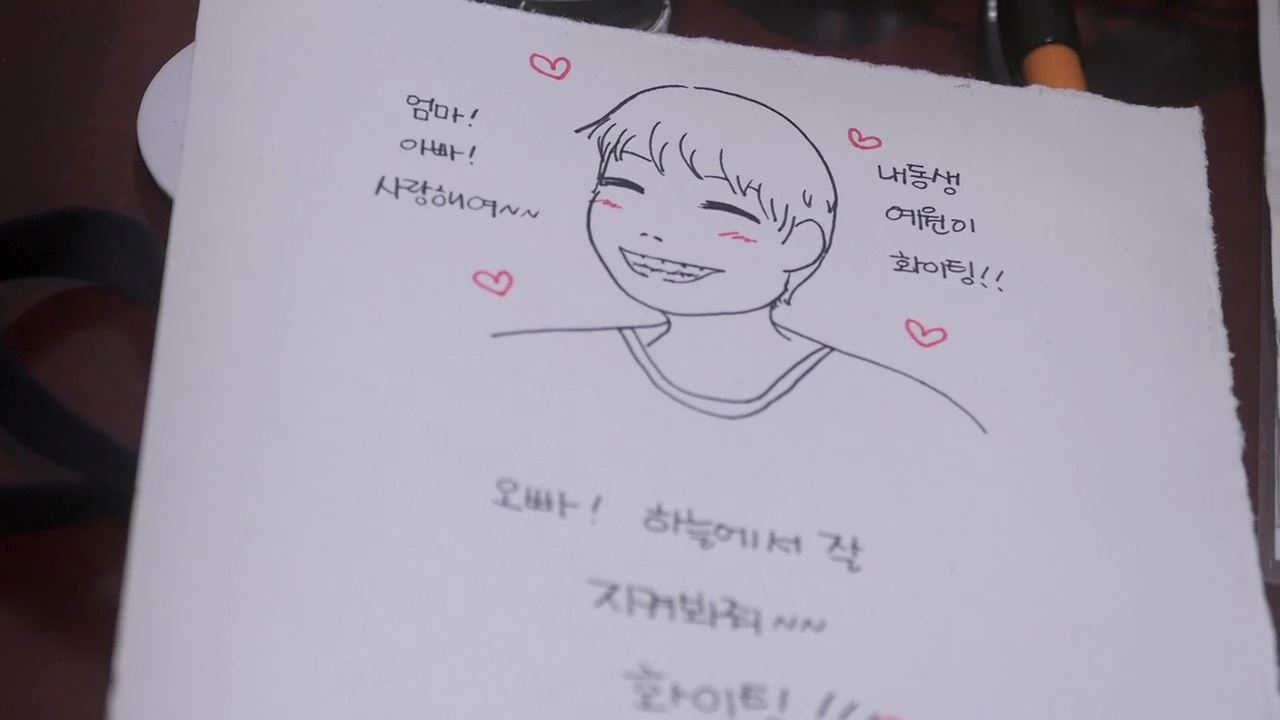 엄마!
아빠!
사랑해여~~
내동생
예원이
화이팅!!
오빠! 하늘에서 잘
지켜봐줘~~
화이팅!!